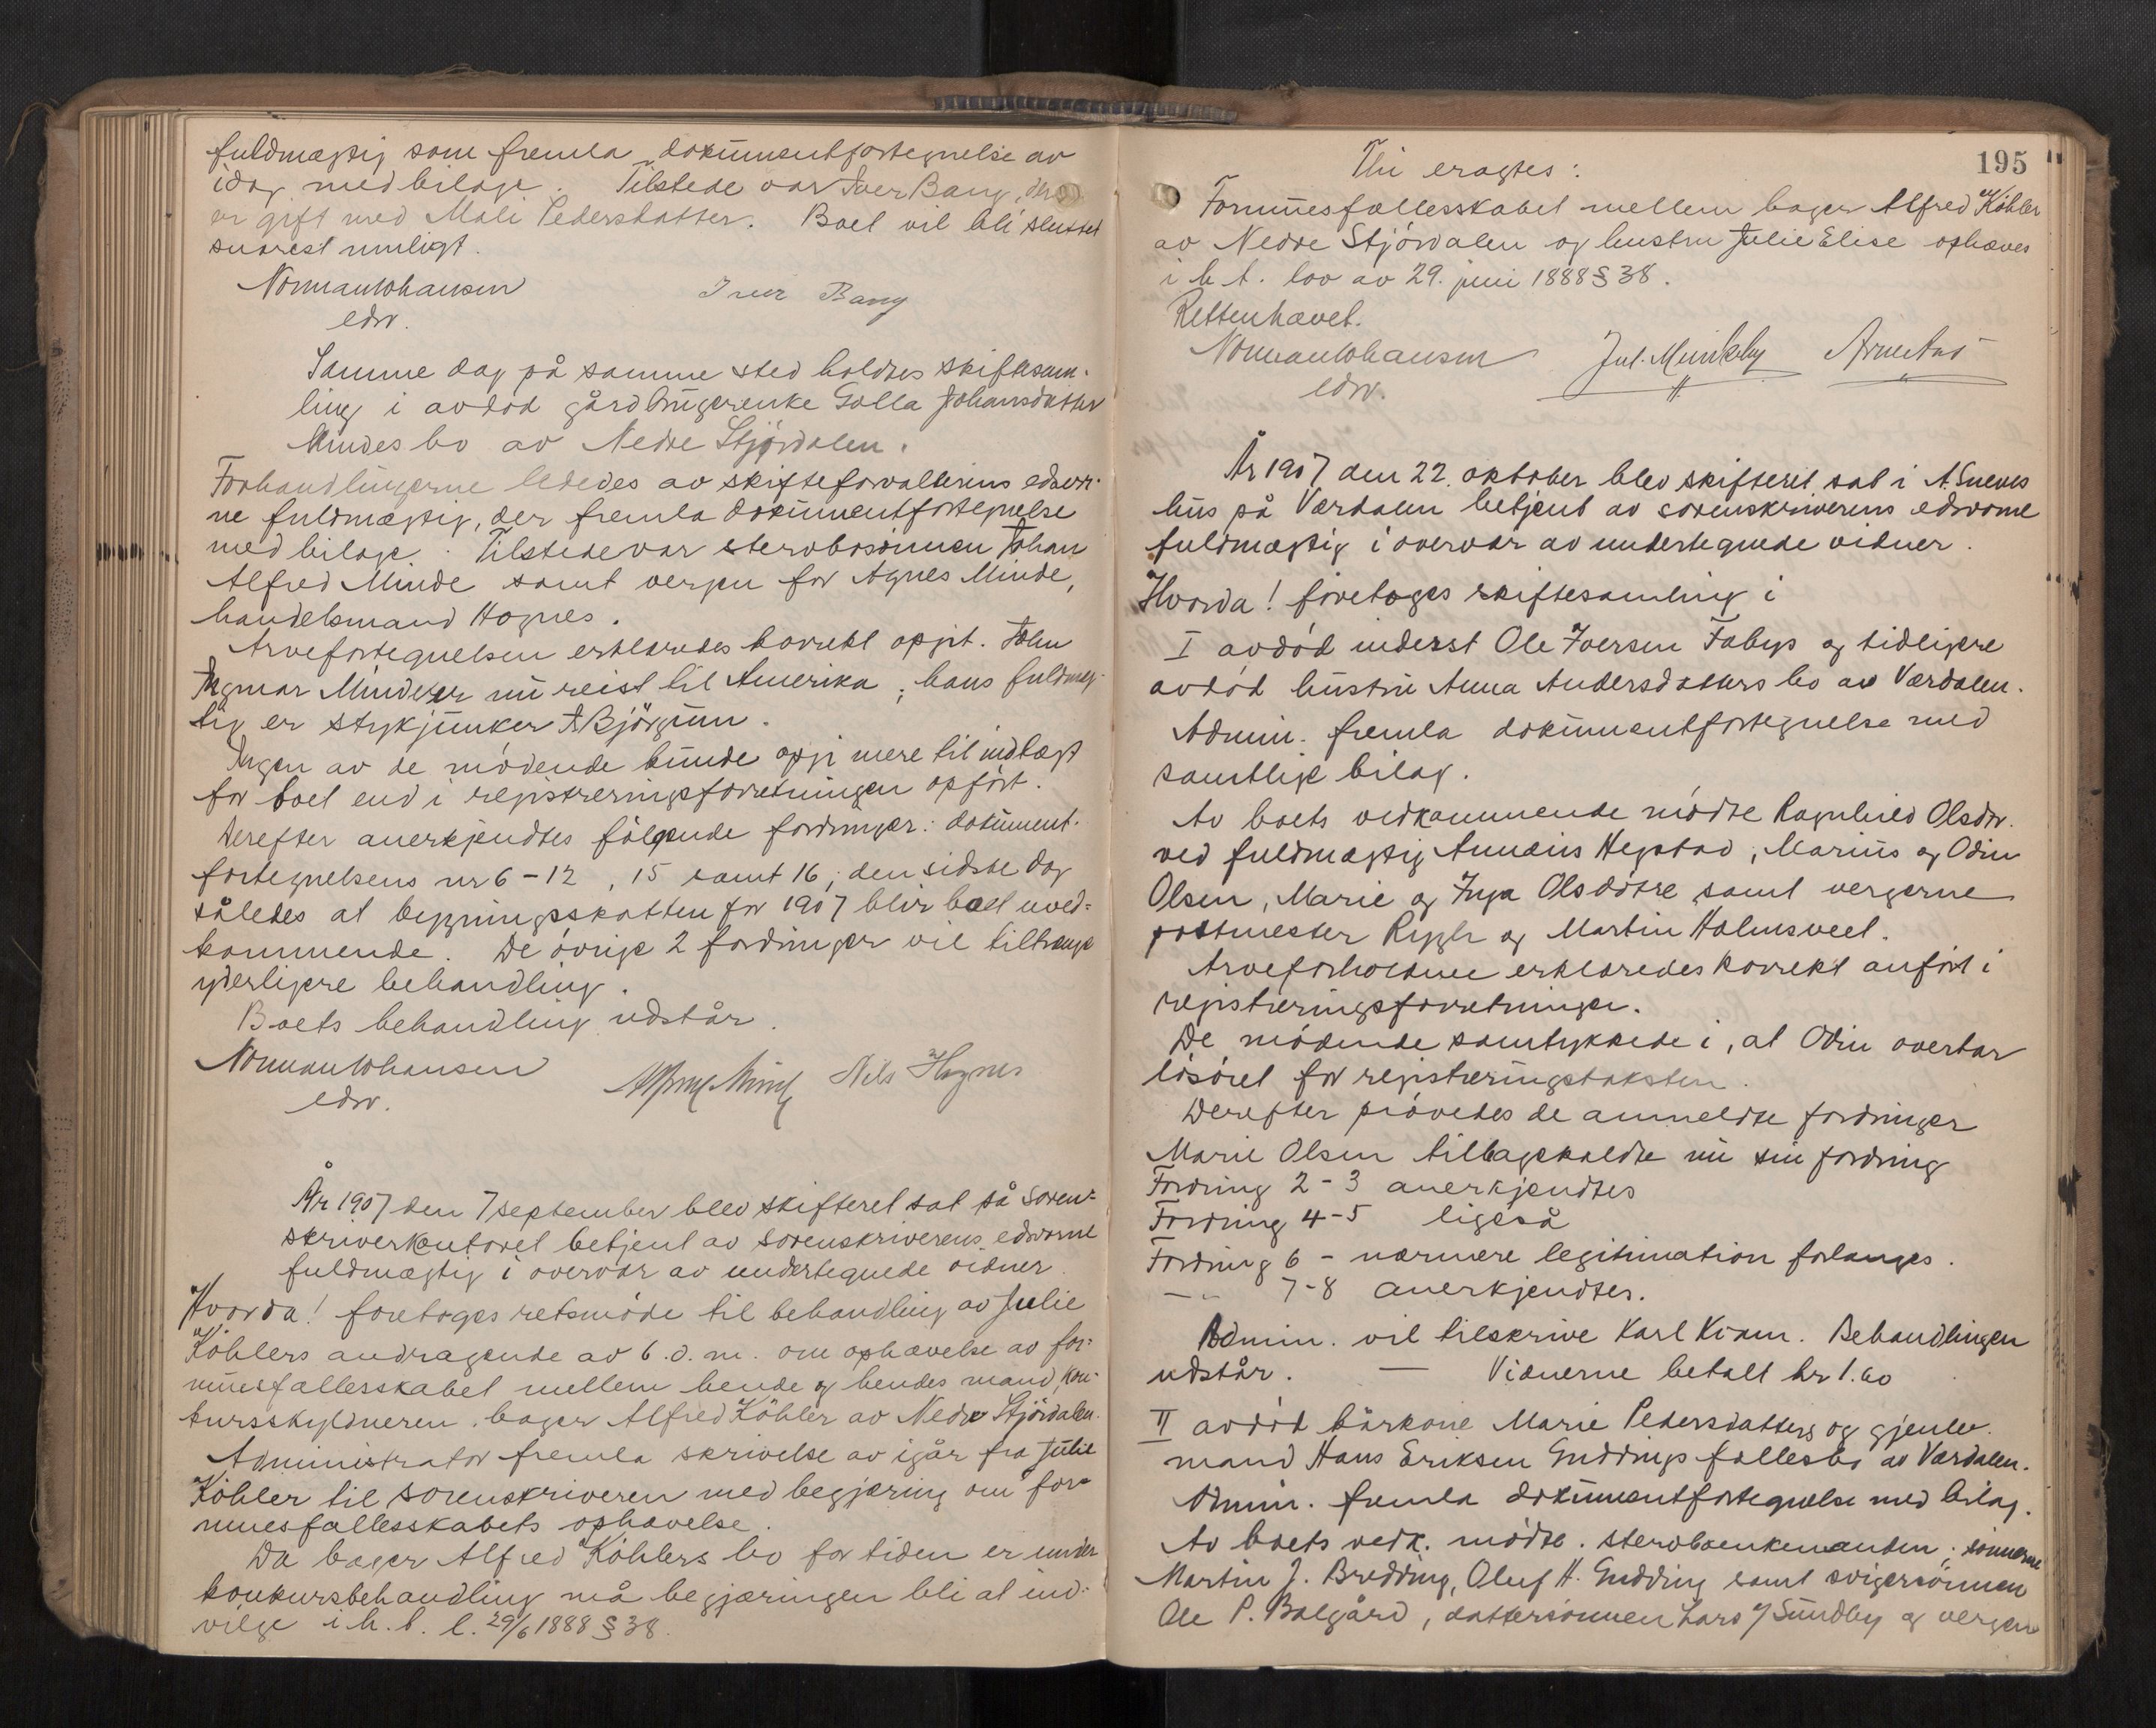 fuldmægtig som fremla dokumentfortegnelse av
idag med bilage. Tilstede var Iver Bang, der
er gift med Mali Pedersdatter. Boet vil bli sluttet
snarest muligt.
Normann Johansen Iver Bang
edsv.
Samme dag på samme sted holdtes skiftesam-
ling i avdød gårdbrugerenke Golla Johansdatter
Mindes bo av Nedre Stjørdalen.
Forhandlingerne lededes av skifteforvalterens edsvor-
ne fuldmægtig, der fremla dokumentfortegnelse
med bilage. Tilstede var stervbosønnen Johan
Alfred Minde samt vergen for Agnes Minde,
handelsmand Hognes.
Arvefortegnelsen erklæredes korrekt opgit. John
Ingmar Minde er nu reist til Amerika; hans fuldmæg-
tig er stykjunker A Bjørgum.
Ingen av de mødende kunde opgi mere til indtægt
for boet end i registreringsforretningen opført.
Derefter anerkjendtes følgende fordringer: dokument-
fortegnelsens nr 6-12, 15 samt 16, den sidste dog
således at bygningsskatten for 1907 blir boet uved-
kommende. De øvrige 2 fordringer vil tiltrænge
yderligere behandling.
Boets behandling udstår.
Normann Johansen Nils Hognes
edsv.
År 1907 den 7 september blev skifteret sat på soren-
skriverkontoret betjent av sorenskriverens edsvorne
fuldmægtig i overvær av undertegnede vidner.
Hvorda! foretoges retsmøde til behandling av Julie
Köhlers andragende av 6. d.m. om ophævelse av for-
muesfællesskabet mellem hende og hendes mand, kon-
kursskyldneren, bager Alfred Köhler av Nedre Stjørdalen.
Administrator fremla skrivelse av igår fra Julie
Köhler til sorenskriveren med begjæring om for-
muesfællesskabets ophævelse.
Da bager Alfred Köhlers bo for tiden er under
konkursbehandling må begjæringen bli at ind-
vilge i h. t. l. 29/6 1888 § 38.
195
Thi eragtes:
Formuesfællesskabet mellem bager Alfred Köhler
av Nedre Stjørdalen og hustru Julie Elise ophæves
i h. t. lov av 29. juni 1888 § 38.
Retten hævet.
Normann Johansen Jul. Munkeby
edsv.
År 1907 den 22. oktober blev skifteret sat i A. Sneves
hus på Værdalen betjent av sorenskriverens edsvorne
fuldmægtig i overvær av undertegnede vidner.
Hvorda! foretoges skiftesamling i
I avdød inderst Ole Iversen Fabys og tidligere
avdød hustru Anna Andersdatters bo av Værdalen.
Admin. fremla dokumentfortegnelse med
samtlige bilag.
Av boets vedkommende mødte Ragnhild Olsdtr.
ved fuldmægtig Annæus Hegstad, Marius og Odin
Olsen, Marie og Inga Olsdøtre samt vergerne
postmester Rygh og Martin Holmsveet.
Arveforholdene erklæredes korrekt anført i
registreringsforretningen.
De mødende samtykkede i, at Odin overtar
løsøret for registreringstaksten.
Derefter prøvedes de anmeldte fordringer
Marie Olsen tilbagekaldte nu sin fordring
Fordring 2-3 anerkjendtes
Fordring 4-5 ligeså
Fordring 6 - nærmere legitimation forlanges.
—"— 7-8 anerkjendtes.
Admin. vil tilskrive Karl Kram. Behandlingen
udstår. — Vidnerne betalt kr 1.60
II avdød kårkone Marie Pedersdatters og gjenlev.
mand Hans Eriksen Guddings fællesbo av Værdalen.
Admin. fremla dokumentfortegnelse med bilag.
Av boets vedk. mødte stervboenkemanden; sønnerne
Martin J. Bredding, Oluf H. Gudding samt svigersønnen
Ole P. Balgård, dattersønnen Lars J Sundby og vergen